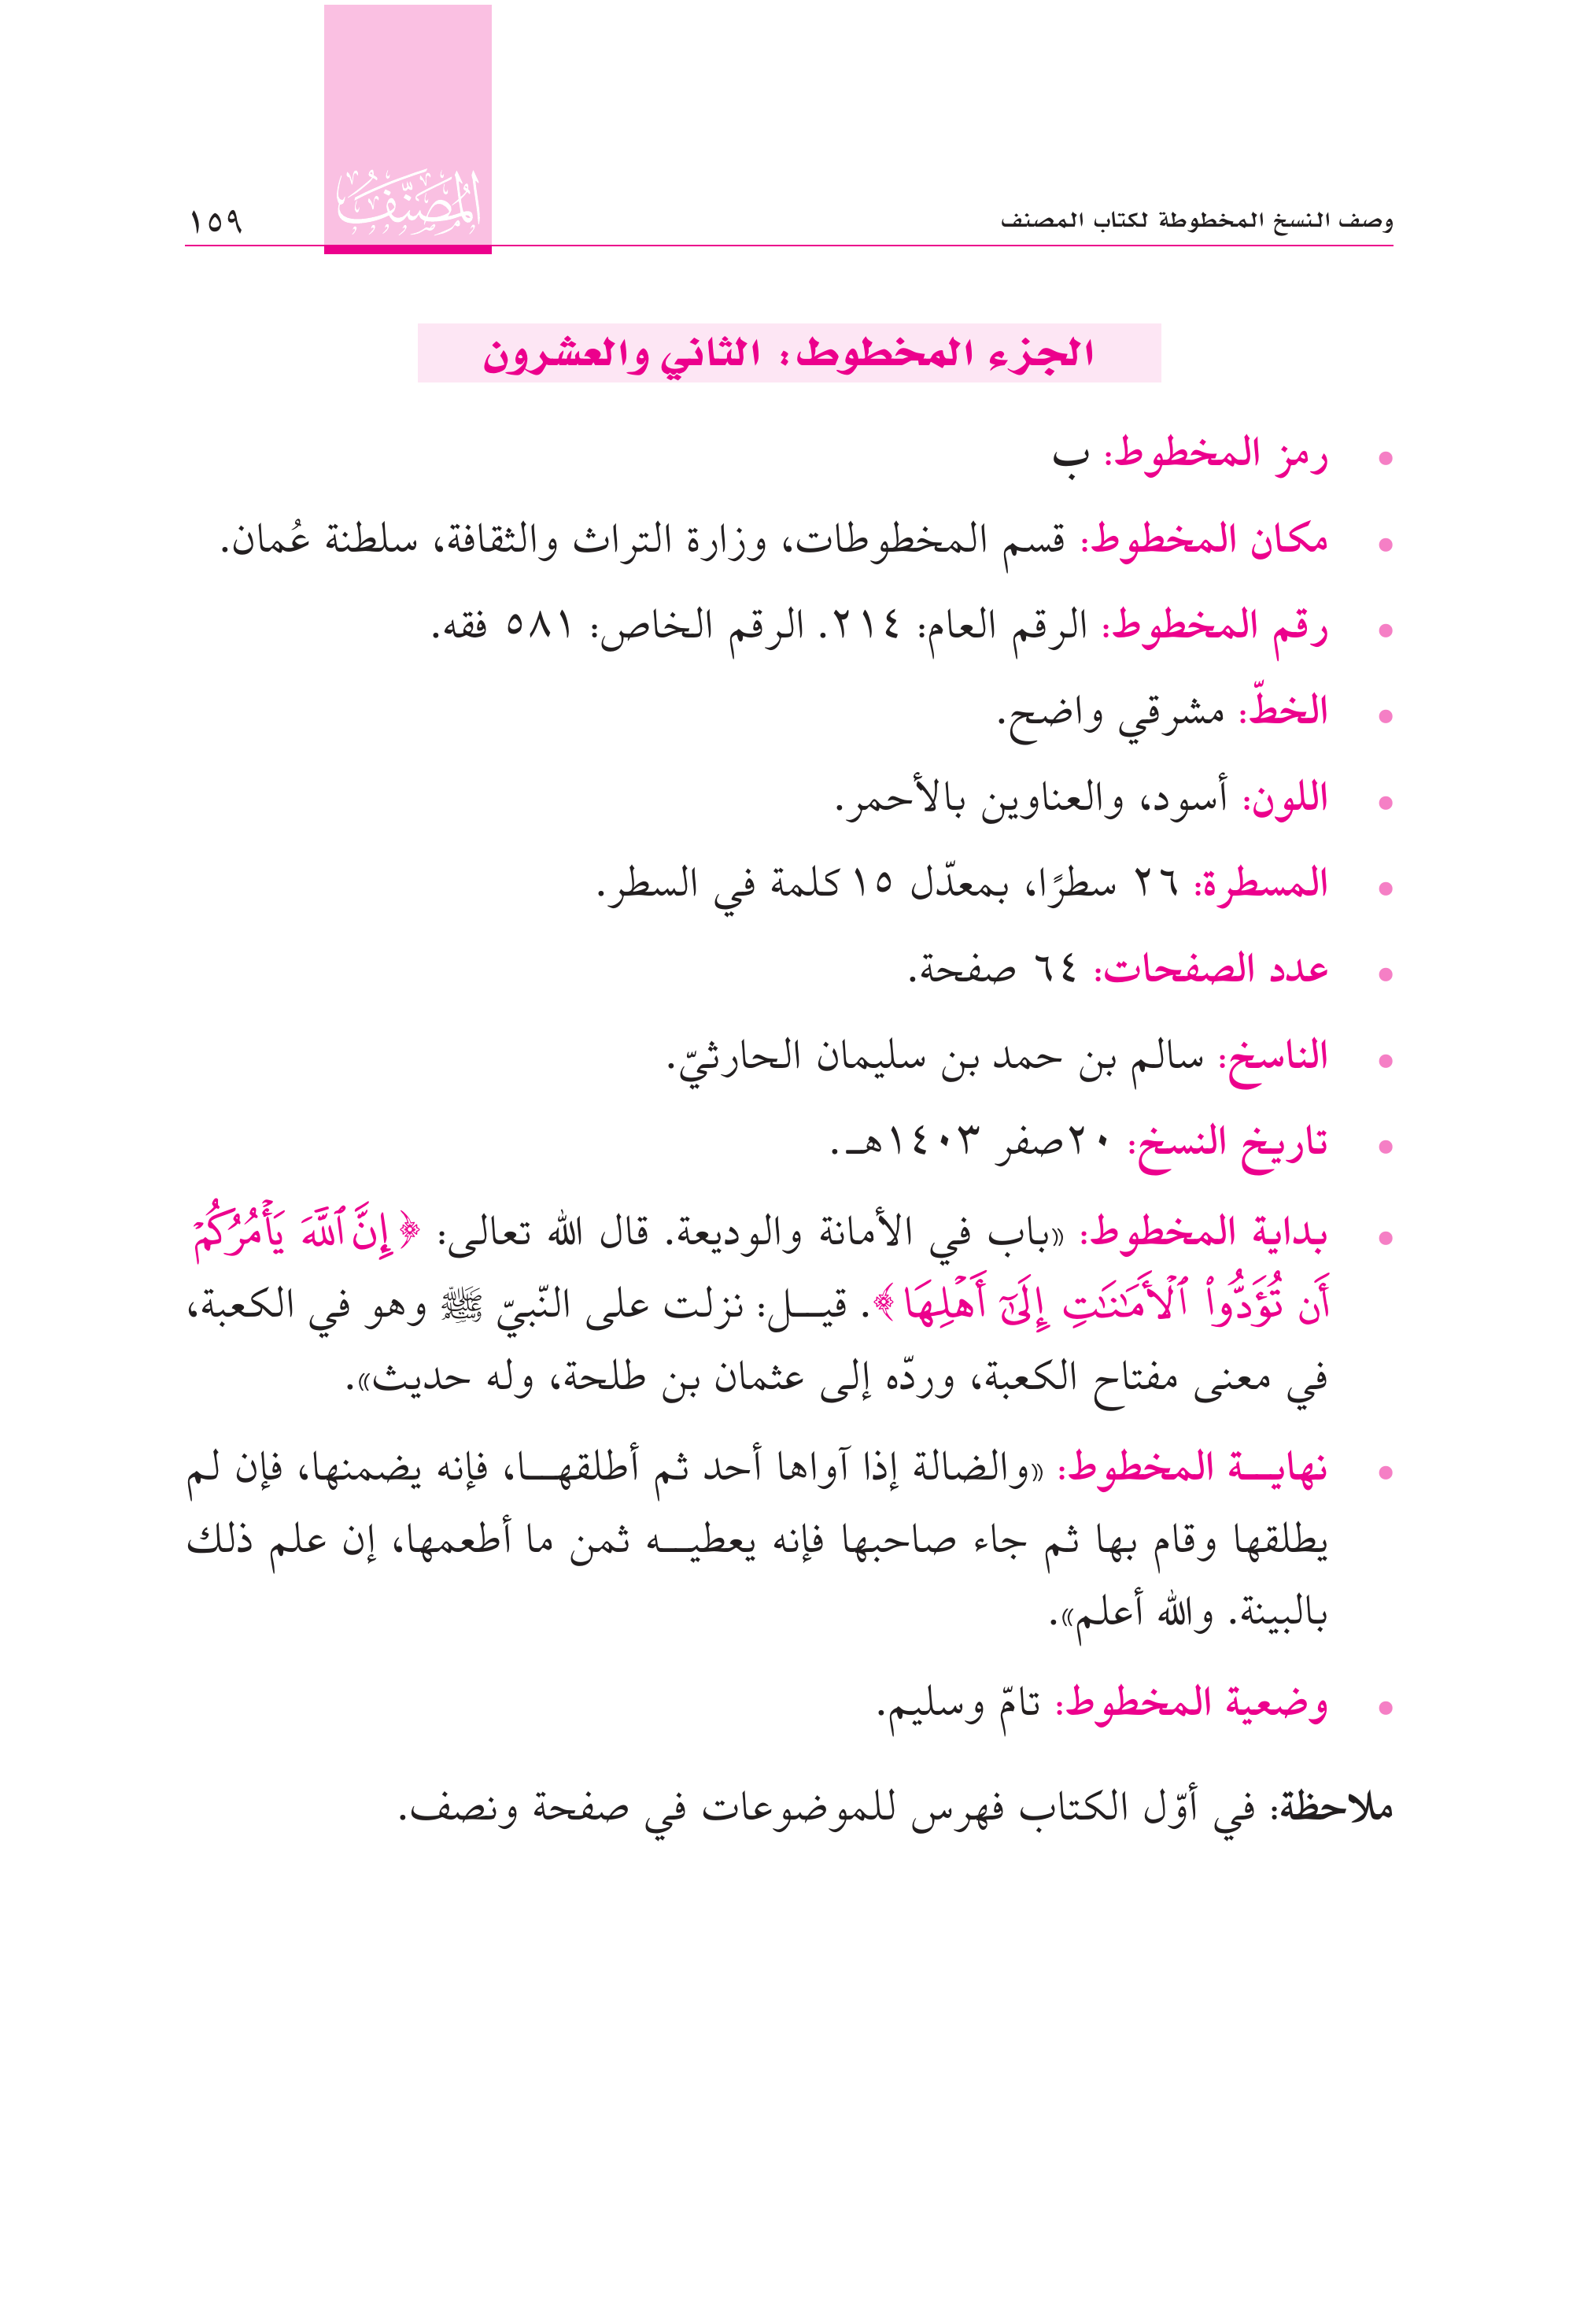 وصف النسخ المخطوطة لكتاب المصنف
المُصَنَّفُ
١٥٩
الجزء المخطوط: الثاني والعشرون
• رمز المخطوط: ب
• مكان المخطوط: قسم المخطوطات، وزارة التراث والثقافة، سلطنة عُمان.
• رقم المخطوط: الرقم العام: ٢١٤. الرقم الخاص: ٥٨١ فقه.
• الخطّ: مشرقي واضح.
• اللون: أسود، والعناوين بالأحمر.
• المسطرة: ٢٦ سطرًا، بمعدّل ١٥ كلمة في السطر.
• عدد الصفحات: ٦٤ صفحة.
• الناسخ: سالم بن حمد بن سليمان الحارثيّ.
• تاريخ النسخ: ٢٠صفر ١٤٠٣هـ.
• بداية المخطوط: «باب في الأمانة والوديعة. قال الله تعالى: ﴿إِنَّ ٱللَّهَ يَأۡمُرُكُمۡ
أَن تُؤَدُّواْ ٱلۡأَمَٰنَٰتِ إِلَىٰٓ أَهۡلِهَا﴾. قيـــل: نزلت على النّبيّ ﷺ وهو في الكعبة،
في معنى مفتاح الكعبة، وردّه إلى عثمان بن طلحة، وله حديث».
• نهايـــة المخطوط: «والضالة إذا آواها أحد ثم أطلقهـــا، فإنه يضمنها، فإن لم
يطلقها وقام بها ثم جاء صاحبها فإنه يعطيـــه ثمن ما أطعمها، إن علم ذلك
بالبينة. والله أعلم».
• وضعية المخطوط: تامّ وسليم.
ملاحظة: في أوّل الكتاب فهرس للموضوعات في صفحة ونصف.